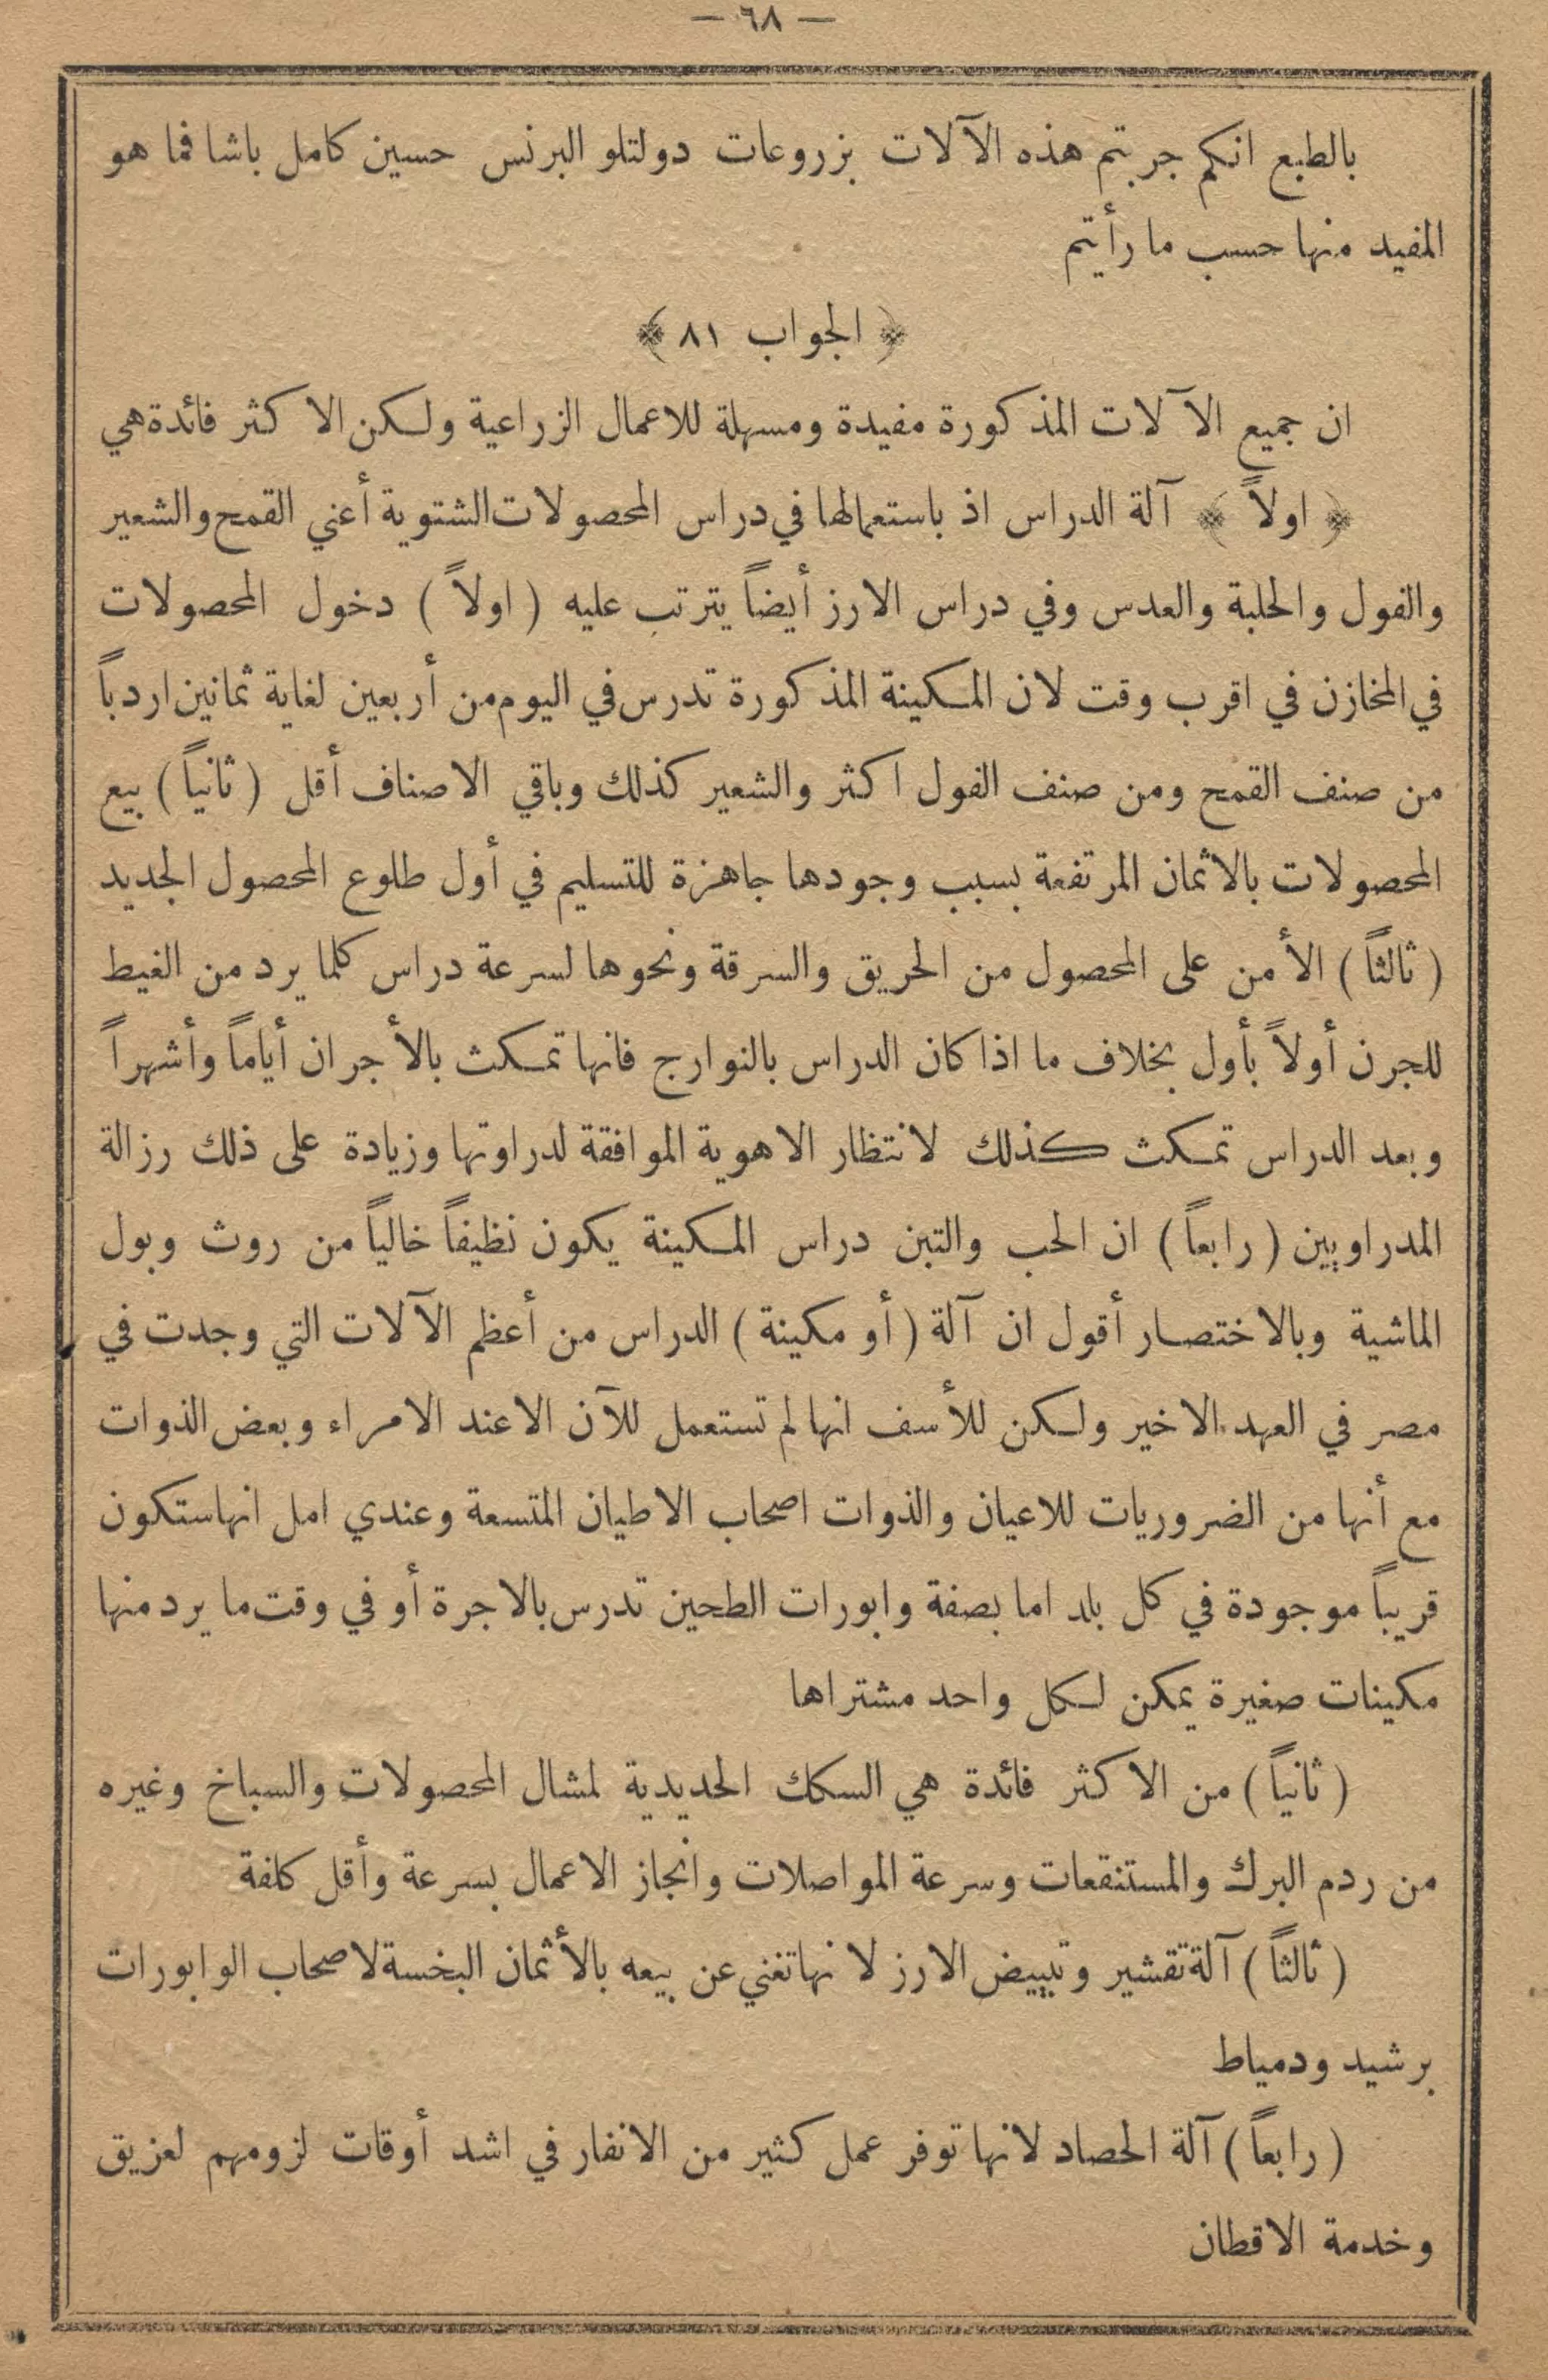 — ٦٨ —
بالطبع انكم جربتم هذه الآلات بزروعات دولتلو البرنس حسين كامل باشا فما هو
المفيد منها حسب ما رأيتم
﴿ الجواب ٨١ ﴾
ان جميع الآلات المذكورة مفيدة ومسهلة للاعمال الزراعية ولكن الاكثر فائدة هي
﴿ اولاً ﴾ آلة الدراس اذ باستعمالها في دراس المحصولات الشتوية أعني القمح والشعير
والفول والحلبة والعدس وفي دراس الارز أيضاً يترتب عليه ( اولاً ) دخول المحصولات
في المخازن في اقرب وقت لان المكينة المذكورة تدرس في اليوم من أربعين لغاية ثمانين اردباً
من صنف القمح ومن صنف الفول اكثر والشعير كذلك وباقي الاصناف أقل ( ثانياً ) بيع
المحصولات بالاثمان المرتفعة بسبب وجودها جاهزة للتسليم في أول طلوع المحصول الجديد
( ثالثاً ) الأمن على المحصول من الحريق والسرقة ونحوها لسرعة دراس كلما يرد من الغيط
للجرن أولاً بأول بخلاف ما اذا كان الدراس بالنوارج فانها تمكث بالأجران أياماً وأشهراً
وبعد الدراس تمكث كذلك لانتظار الاهوية الموافقة لدراوتها وزيادة على ذلك رزالة
المدراويين ( رابعاً ) ان الحب والتبن دراس المكينة يكون نظيفاً خالياً من روث وبول
الماشية وبالاختصار أقول ان آلة ( أو مكينة ) الدراس من أعظم الآلات التي وجدت في
مصر في العهد الاخير ولكن للأسف انها لم تستعمل للآن الا عند الامراء وبعض الذوات
مع أنها من الضروريات للاعيان والذوات اصحاب الاطيان المتسعة وعندي امل انها ستكون
قريباً موجودة في كل بلد اما بصفة وابورات الطحين تدرس بالاجرة أو في وقت ما يرد منها
مكينات صغيرة يمكن لكل واحد مشتراها
( ثانياً ) من الاكثر فائدة هي السكك الحديدية لمشال المحصولات والسباخ وغيره
من ردم البرك والمستنقعات وسرعة المواصلات وانجاز الاعمال بسرعة وأقل كلفة
( ثالثاً ) آلة تقشير وتبييض الارز لانها تغني عن بيعه بالأثمان البخسة لاصحاب الوابورات
برشيد ودمياط
( رابعاً ) آلة الحصاد لانها توفر عمل كثير من الانفار في اشد أوقات لزومهم لعزيق
وخدمة الاقطان